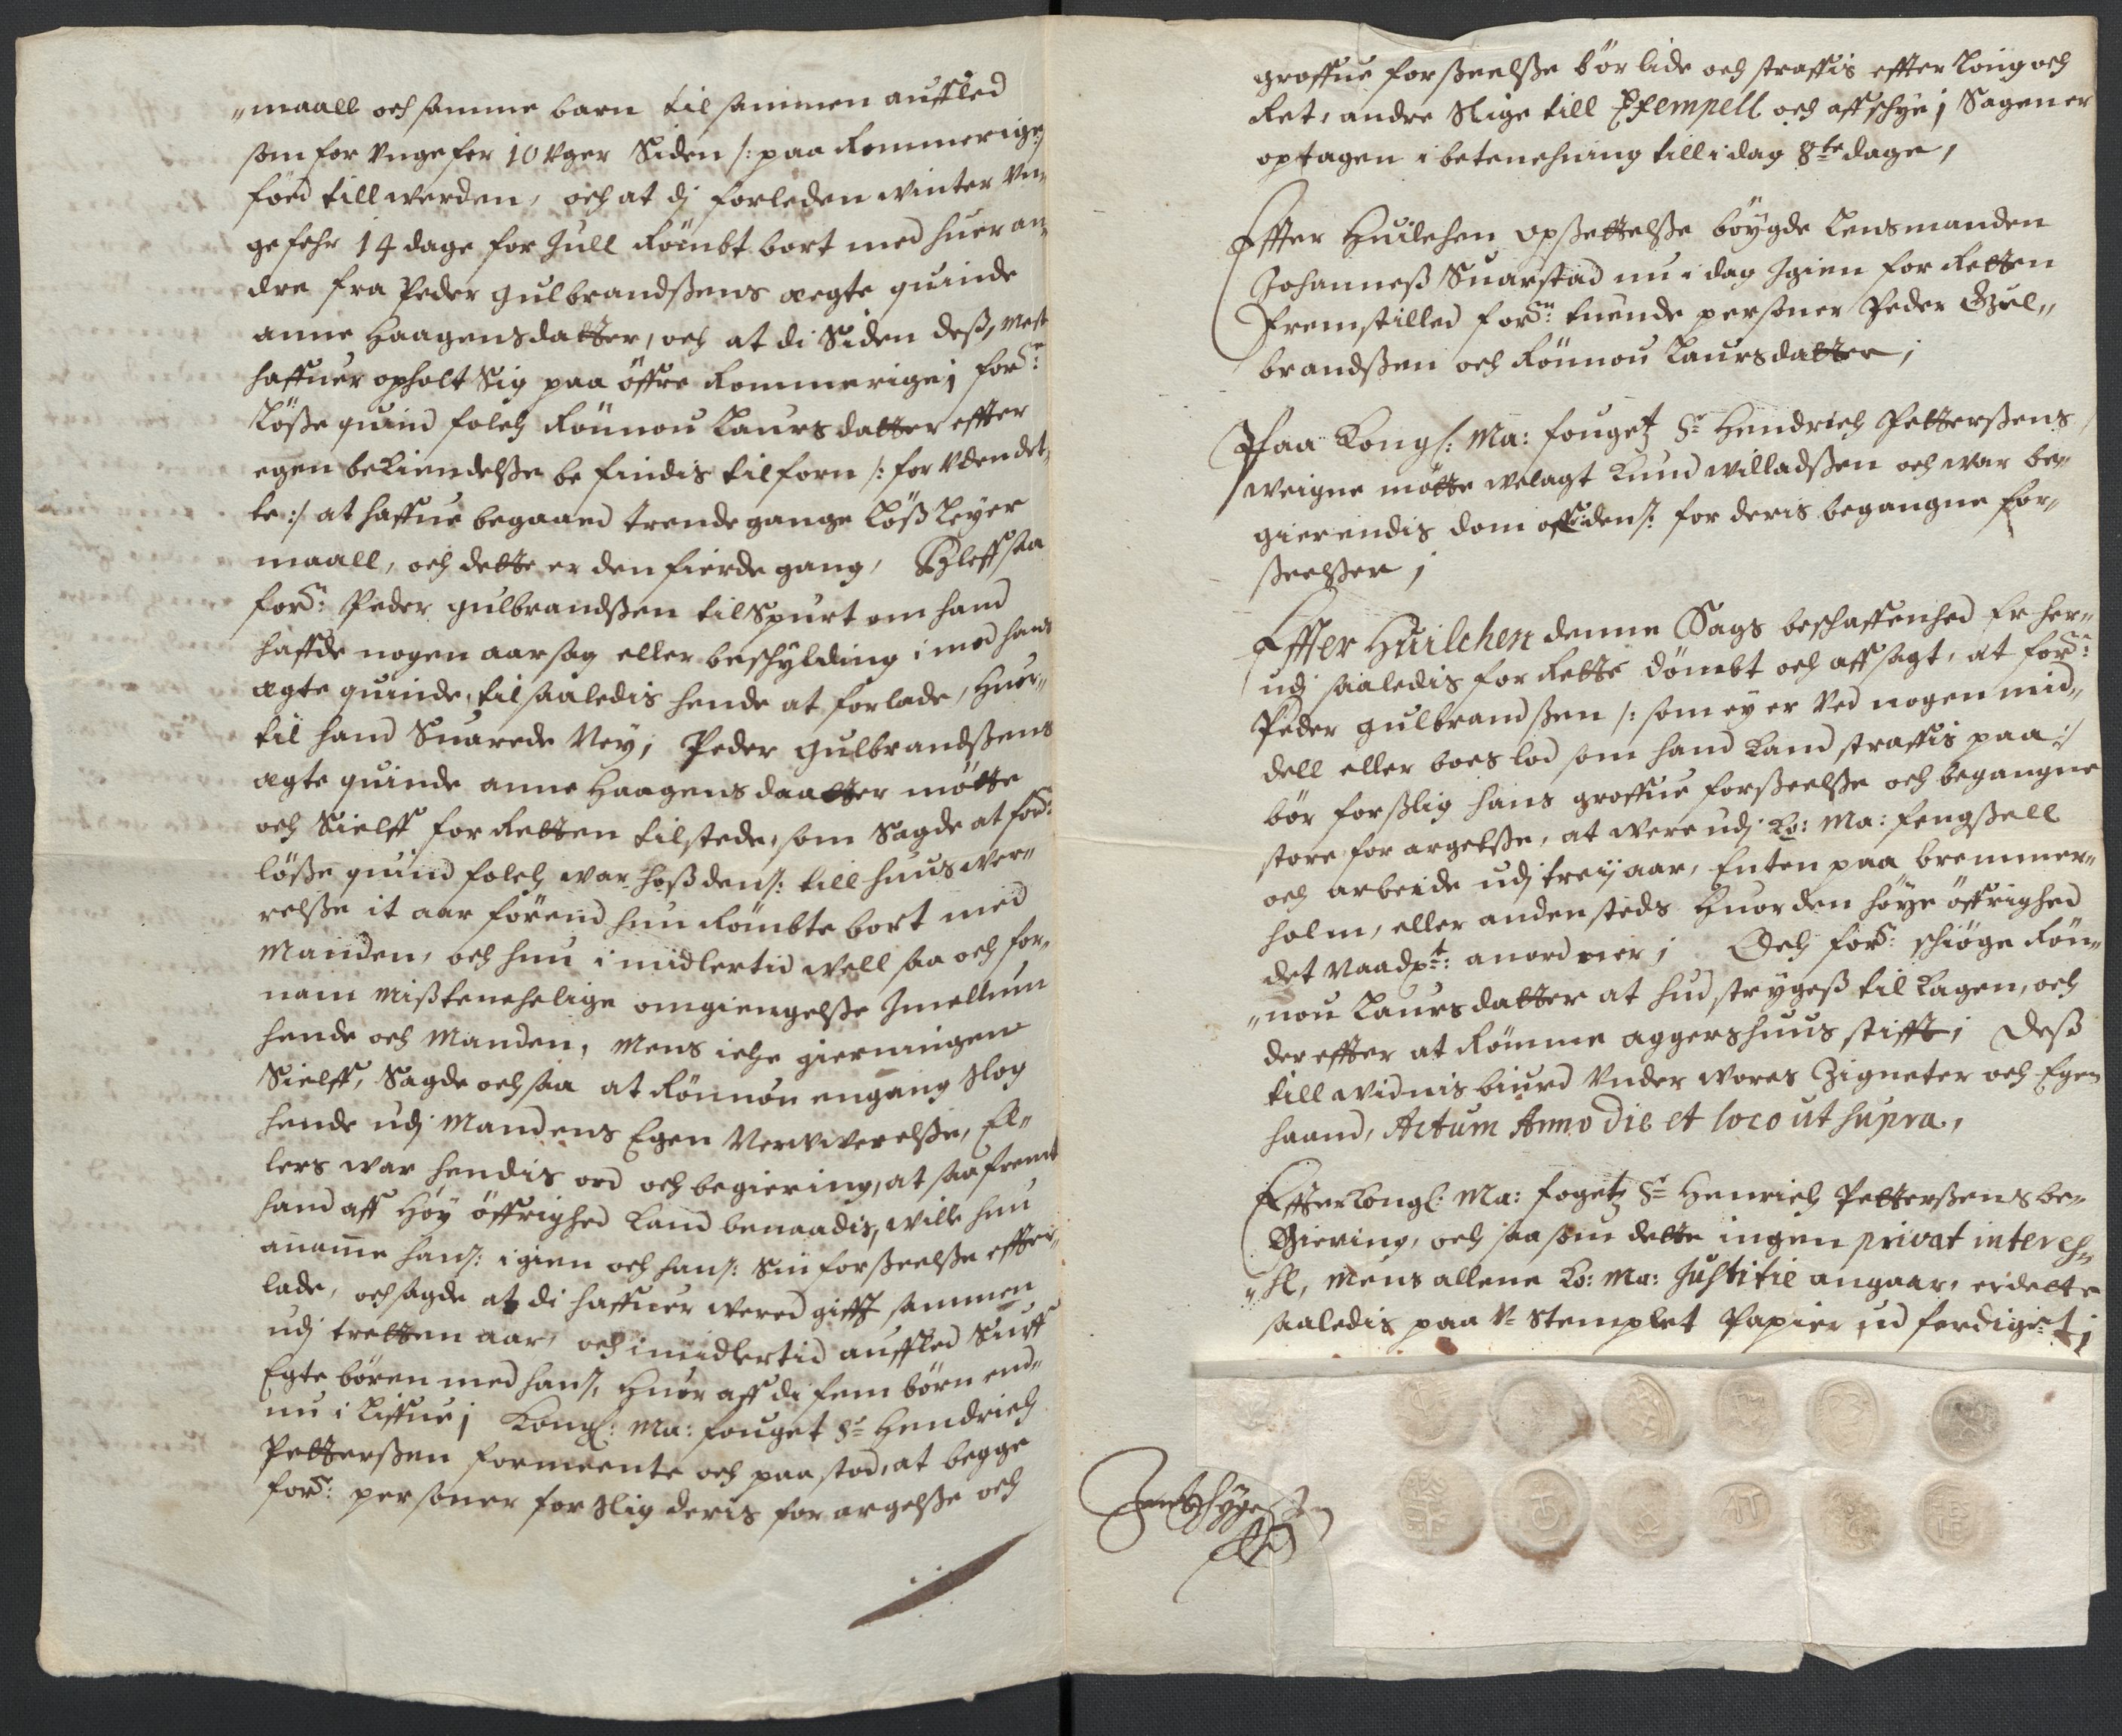 "maall och samme barn tilsammen aufled
som for ungefer 10 uger siden /: paa Rommerige :/
föed till werden, och at dj forleden winter un¬
gefehr 14 dage for Jull Römbt bort med huer an¬
dre fra Peder Gulbrandßens ægte quinde
anne Haagensdatter, och at di Siden deß, mest
haffuer opholt Sig paa öffre Rommerige; fors:ne
Löße quind folch Rönnou Laursdatter effter
egen bekiendelße befindis tilforn /: for uden det¬
te :/ at haffue begaaed trende gange Löß Leyer
maall, och dette er den fierde gang, Bleff saa
fors: Peder Gulbrandßen tilSpurt om hand
haffde nogen aarsag eller beschylding imod hans
ægte quinde, til saaledis hende at forlade, Huor¬
til hand Suarede Ney; Peder Gulbrandßens
ægte quinde anne Haagensdaatter mötte
och Sielff for Retten tilstede, som Sagde at fors:
löße quind folch war hoß dens: till huus wer¬
relße it aar förend hun Römbte bort med
Manden, och hun i midlertid well saa och for¬
nam mißtenchelige omgiengelße Jmellum
hende och Manden, mens iche gierningen
Sielff, Sagde och saa at Rönnou engang slog
hende udj Mandens Egen Nerwerelße, El¬
lers war hendis ord och begiering, at saafremt
hand aff Höy öffrighed kand benaadis, wille hun
anamme hans: igien och hans: Sin forßeelße effter¬
lade, och sagde at di haffuer wered gifft sammen
udj tretten aar, och imidlertid auffled Siuff
Egte börn med hans: Huor aff di fem börn end¬
nu i Liffue; Kongl: Ma: fouget Sr Hendrich
Petterßen formeente och paastod, at begge
fors: personer for slig deris forargelße och
groffue forßeelße bör lide och straffis effter Loug och
Ret, andre slige till Exempell och affschye; Sagen er
optagen i betenchning till i dag 8te dage,
Effter Huilchen opßettelße böygde Lensmanden
Johanneß Suarstad nu i dag Jgien for Retten
fremstilled fors:ne tuende personer Peder Gul¬
brandßen och Rönnou Laursdatter;
Paa Kongl: Ma: fougetz Sr Hendrich Petterßens
weigne mötte welagt Knud Willadßen och war be¬
gierendis dom offuer dens: for deris begangne for¬
ßeelßer;
Effter Huilchen denne Sags beschaffenhed Er her¬
udj saaledis for Rette dömbt och aff sagt, at fors:ne
Peder Gulbrandßen /: som ey er ved nogen mid¬
dell eller boes lod som hand kand straffis paa :/
bör for slig hans groffue forßeelße och begangne
store forargelße, at were udj Ko: Ma: fengßell
och arbeide udj treij aar, Enten paa bremmer¬
holm, eller anden steds Huor den höye öffrighed
det naadgst: anordner; Och fors: schiöge Rön¬
"nou Laursdatter at hudstrygeß til kagen, och
der effter at Römme aggershuus stifft; Deß
till widnisbiurd under wores Zigneter och Egen
haand, Actum Anno Die et loco ut supra.,
Effter Kongl: Ma: fogetz Sr Henrich Petterßens be¬
Giering, och saasom dette ingen privat interes¬
"se, mens allene Ko: Ma: Justitie angaar, er dette
saaledis paa u-Stemplet Papier udferdiget;